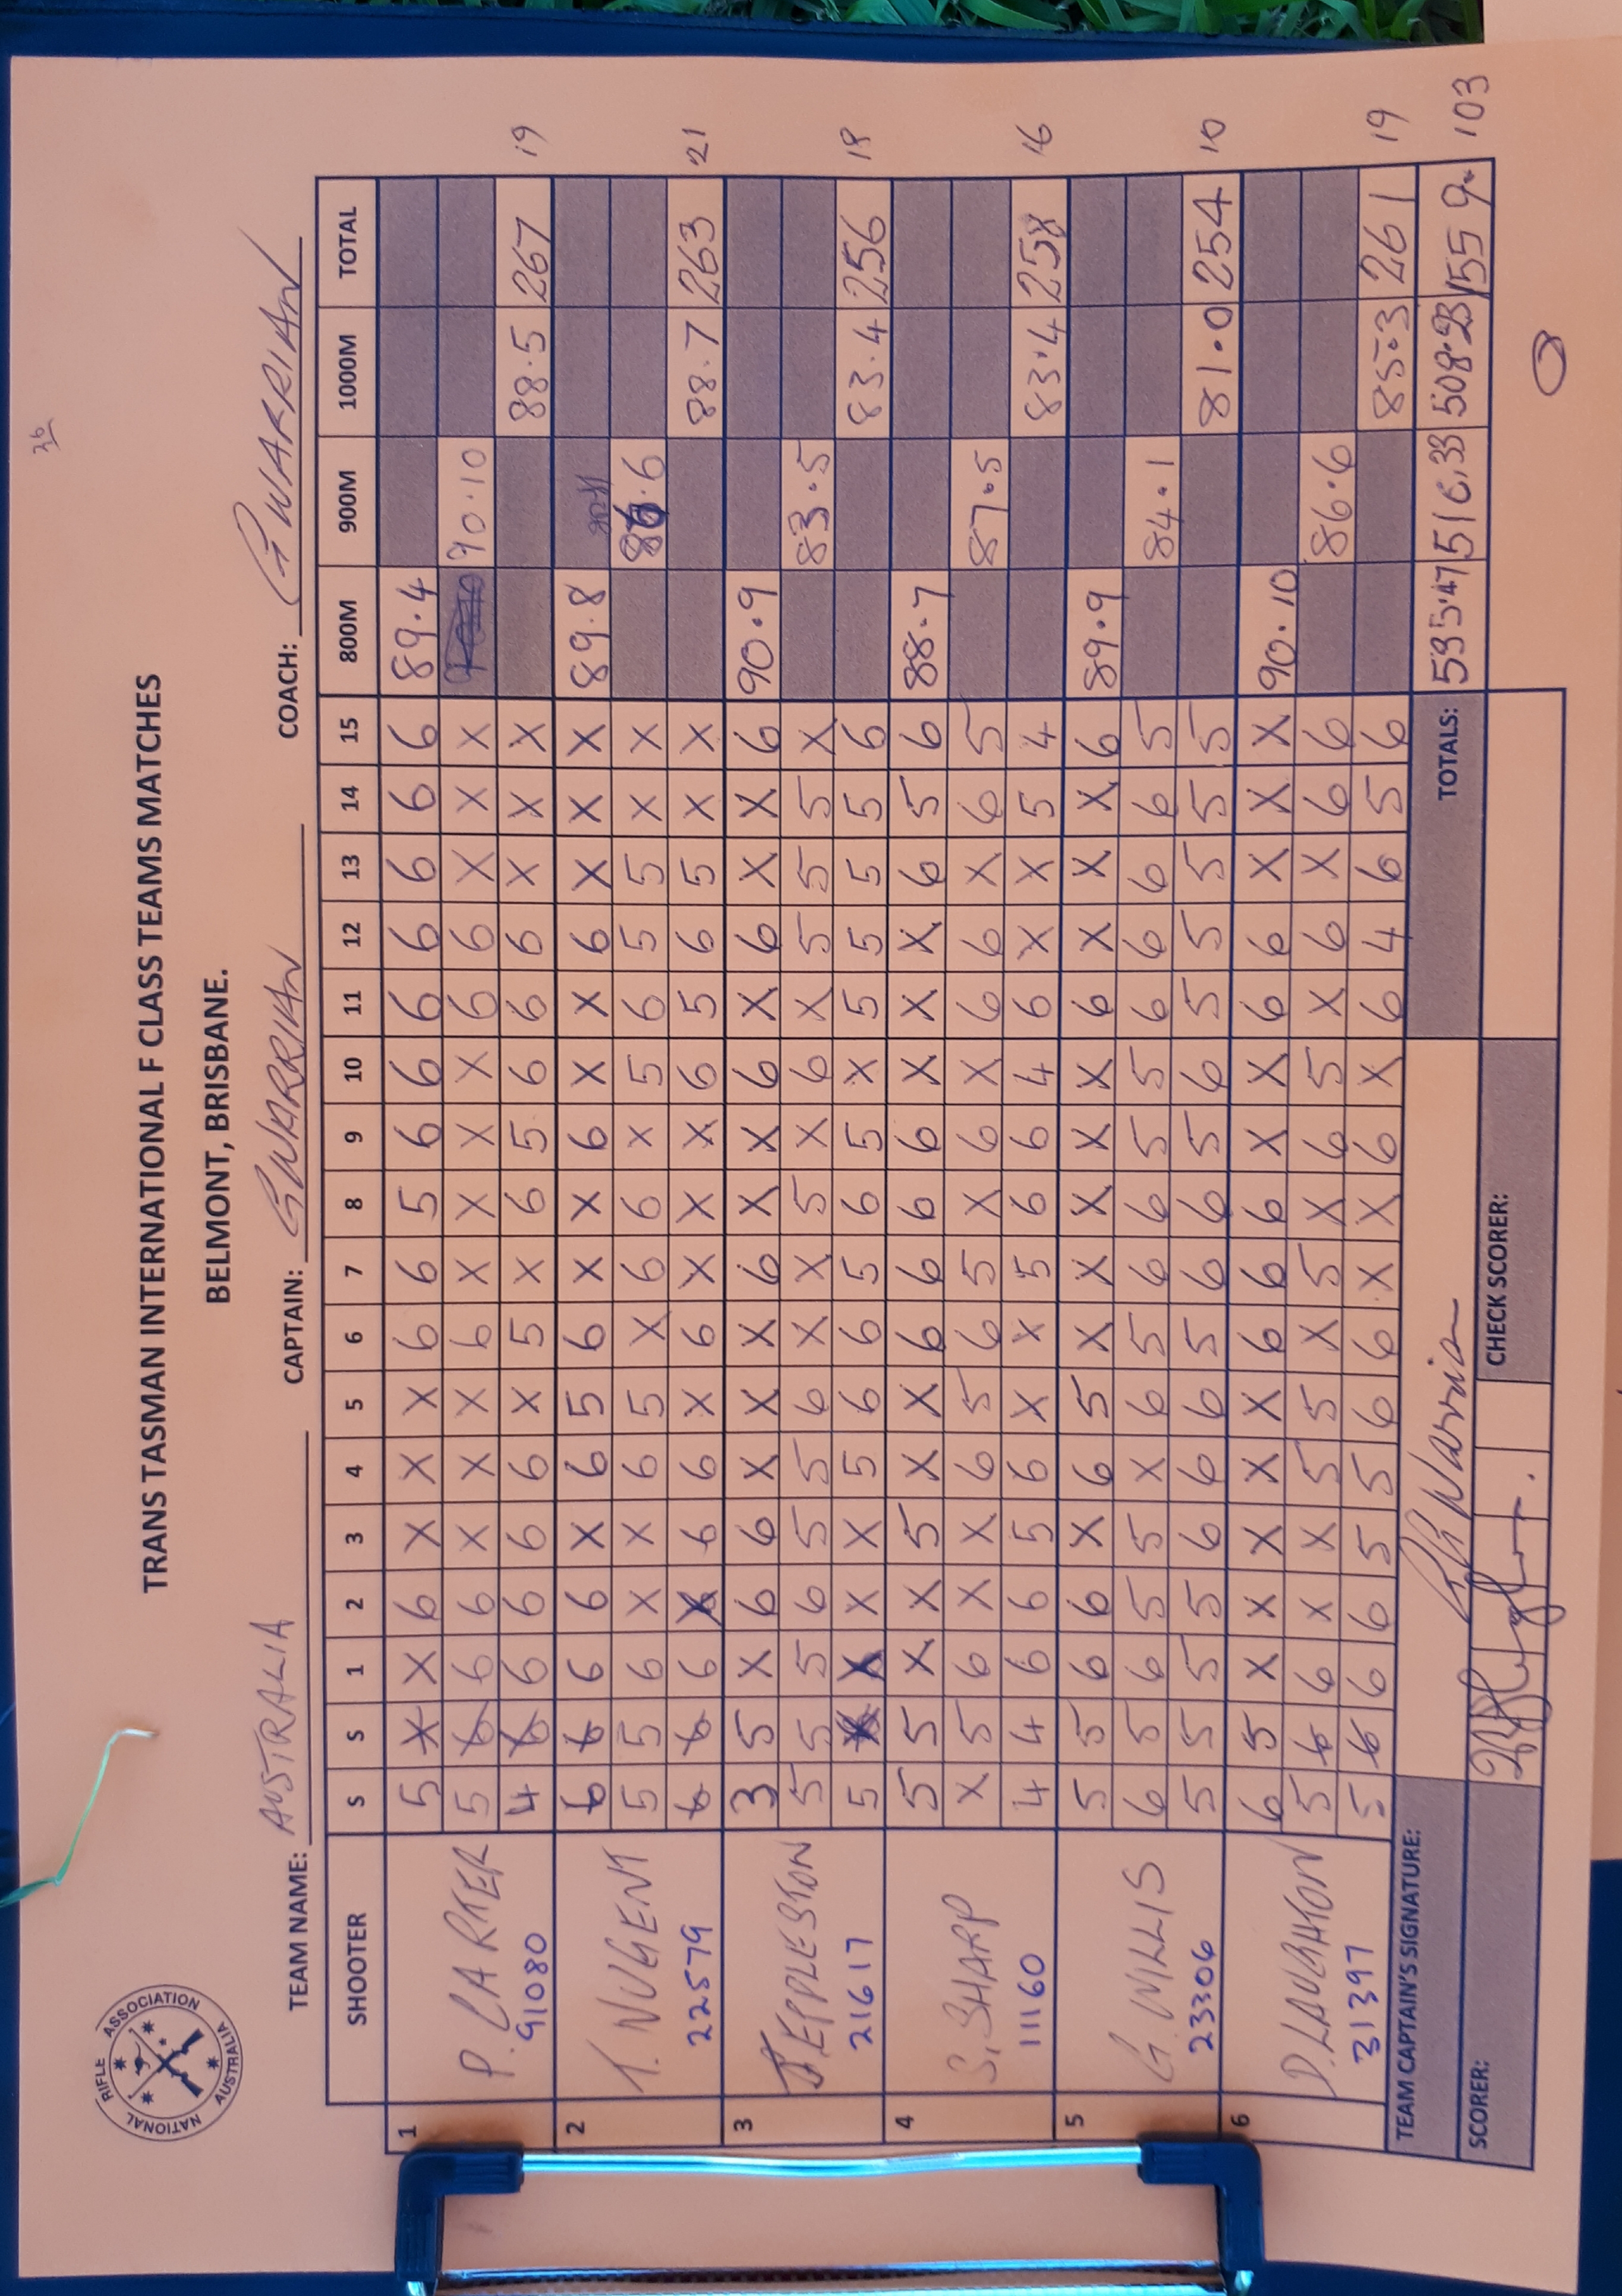 36
NATIONAL RIFLE ASSOCIATION AUSTRALIA
TRANS TASMAN INTERNATIONAL F CLASS TEAMS MATCHES
BELMONT, BRISBANE.
TEAM NAME: AUSTRALIA CAPTAIN: G WARRIAN COACH: G WARRIAN
SHOOTER S S 1 2 3 4 5 6 7 8 9 10 11 12 13 14 15 800M 900M 1000M TOTAL
1 5 X X 6 X X X 6 6 5 6 6 6 6 6 6 6 89.4
P. CARTER 5 6 6 6 X X X 6 X X X X 6 6 X X X 90.10
91080 4 6 6 6 6 6 X 5 X 6 5 6 6 6 X X X 88.5 267 19
2 6 6 6 6 X 6 5 6 X X 6 X X 6 X X X 89.8
T. NUGENT 5 5 6 X X 6 5 X 6 6 X 5 6 5 5 X X 86.6
22579 6 6 6 X 6 6 X 6 X X X 6 5 6 5 X X 88.7 263 21
3 3 5 X 6 6 X X X 6 X X 6 X 6 X X 6 90.9
J EPPLESTON 5 5 5 6 5 5 6 X X 5 X 6 X 5 5 5 X 83.5
21617 5 X X X 5 6 6 5 6 5 X 5 5 5 5 6 83.4 256 18
4 5 5 X X 5 X X 6 6 6 6 X X X 6 5 6 88.7
S. SHARP X 5 6 X X 6 5 6 5 X 6 X 6 6 X 6 5 87.5
11160 4 4 6 6 5 6 X X 5 6 6 4 6 X X 5 4 83.4 258 16
5 5 5 6 6 X 6 5 X X X X X 6 X X X 6 89.9
G. WILLIS 6 5 6 5 5 X 6 5 6 6 5 5 6 6 6 6 5 84.1
23306 5 5 5 5 6 6 6 5 6 6 5 6 5 5 5 5 5 81.0 254 10
6 6 5 X X X X X 6 6 6 X X 6 6 X X X 90.10
D. LAUGHTON 5 6 6 X X 5 5 X 5 X 6 5 X 6 X 6 6 86.6
31397 5 6 6 6 5 5 6 6 X X 6 X 6 4 6 5 6 85.3 261 19
TEAM CAPTAIN'S SIGNATURE: TOTALS: 535.47 516.33 508.23 1559. 103
SCORER: CHECK SCORER: